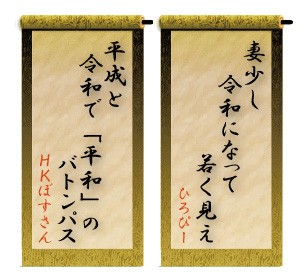 妻少し
令和になって
若く見え
ひろぴー
平成と
令和で「平和」の
バトンパス
HKぼすさん